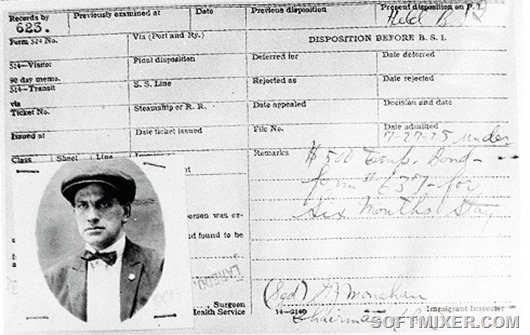 Records by
623.
Previously examined at
Date
Previous disposition
Present disposition on P. I.
Held B
Form 524 No.
Via (Port and Ry.)
DISPOSITION BEFORE B. S. I.
514—Visitor
Final disposition
Deferred for
Date deferred
90 day memo.
514—Transit
S. S. Line
Rejected as
Date rejected
via
Ticket No.
Steamship or R. R.
Date appealed
Decision and date
Issued at
Date ticket issued
File No.
Date admitted
7-27-25 under
Class
Sheet
Line
Remarks
$500 Temp. Bond-
form # 637-for
Six Months Stay
person was ex-
nd found to be
LAREDO,
Surgeon
Health Service
(Sgd) G Monahan
Chairman
14—2140
Immigrant Inspector
SOFTMIXER.COM